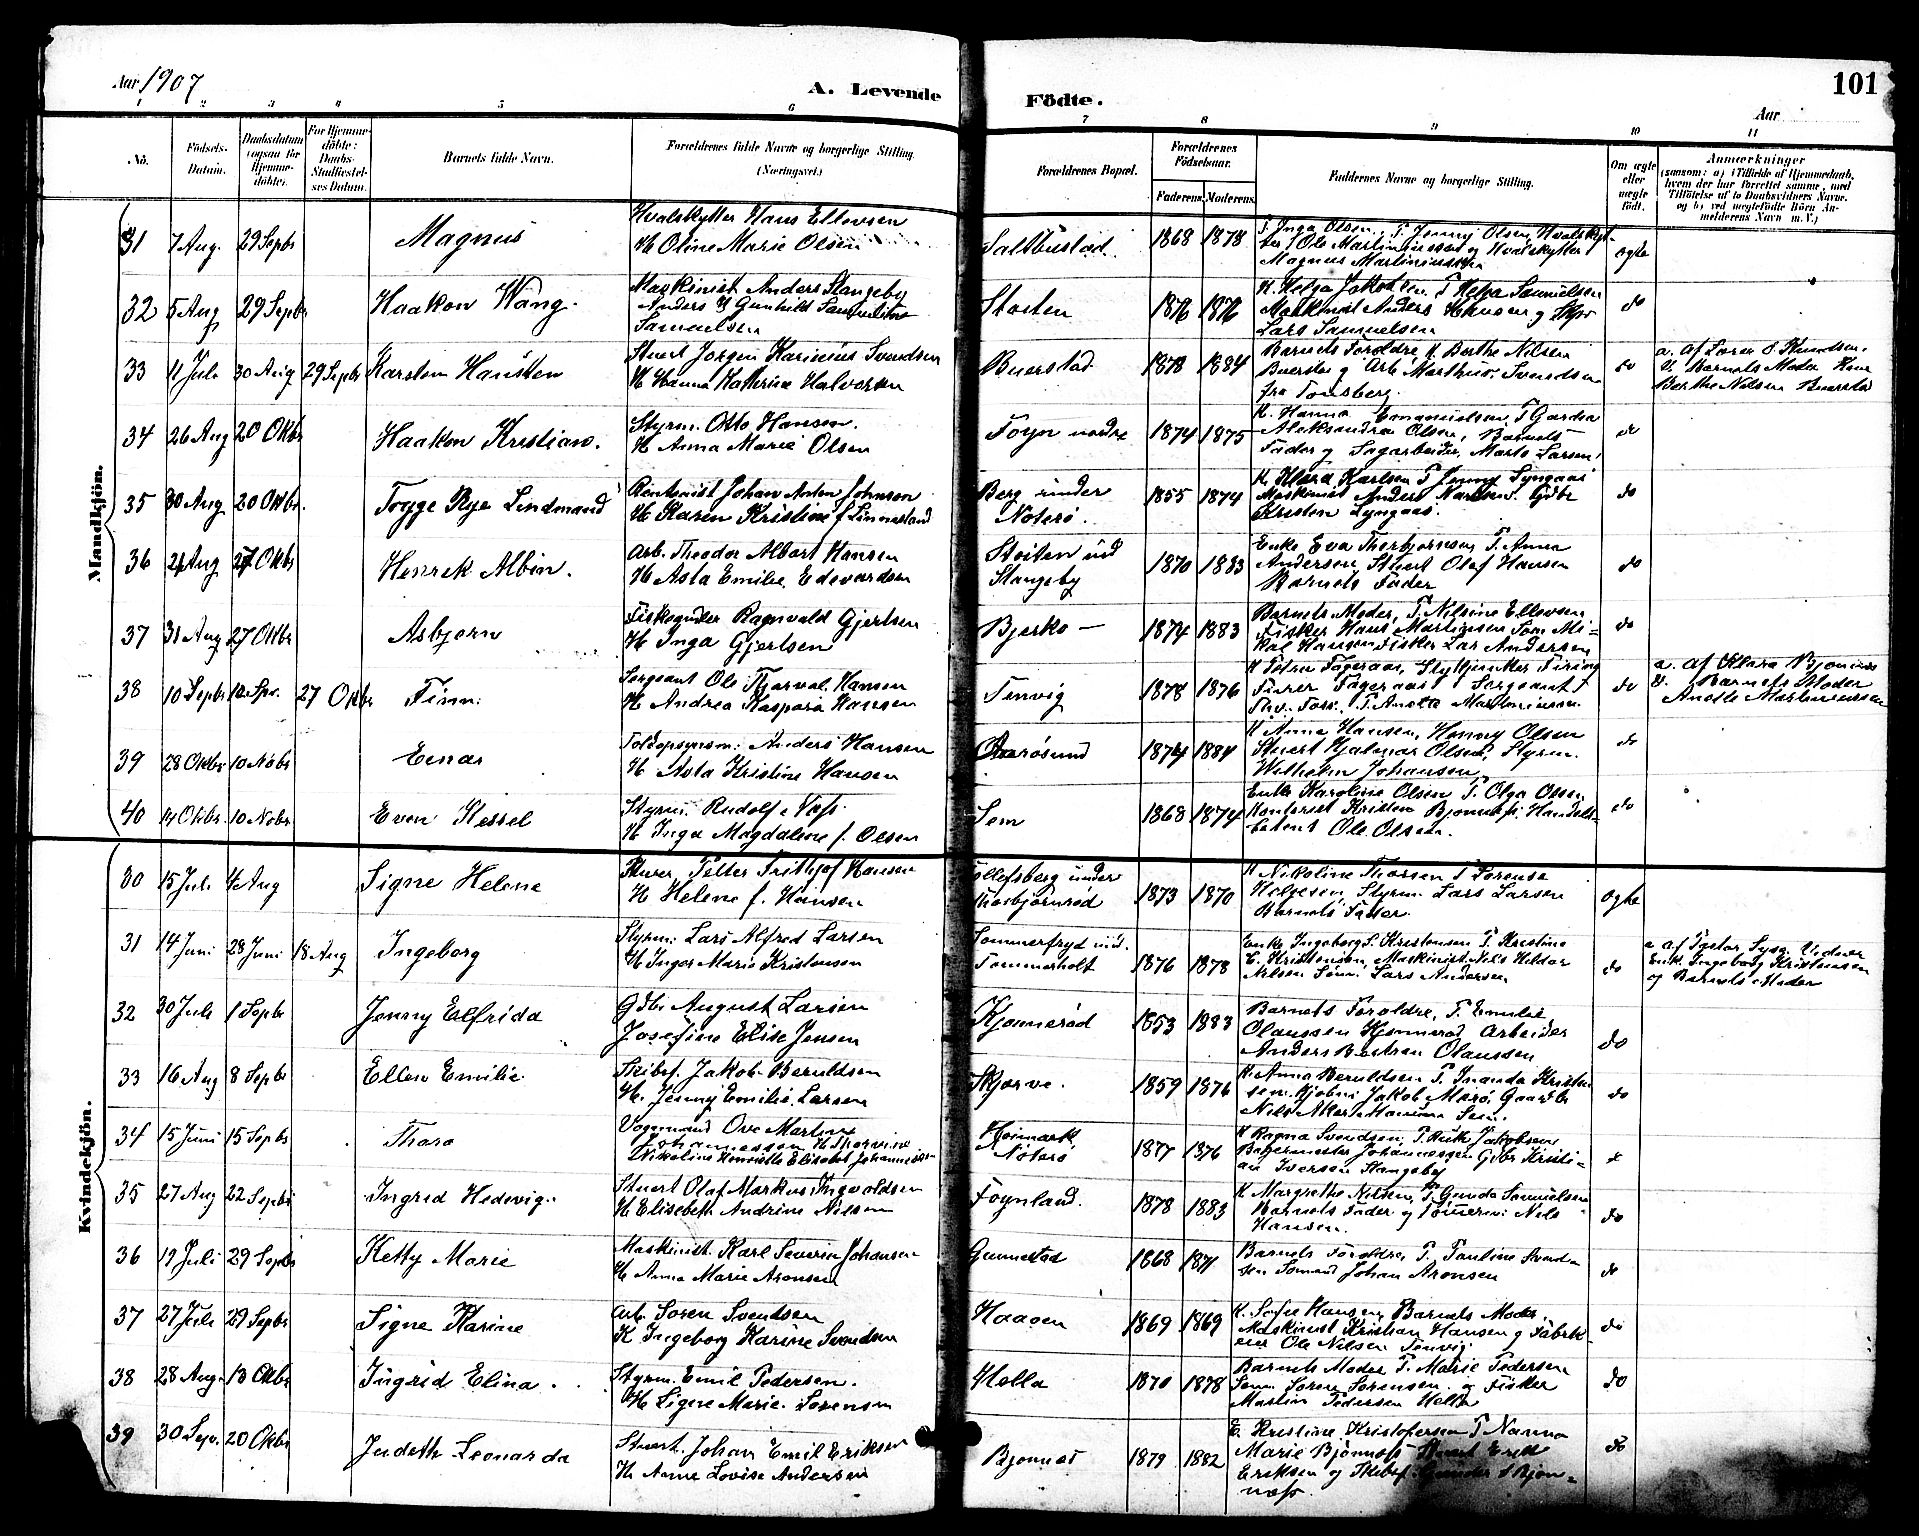 Aar 1907
A. Levende Födte.
101
Aar
1 2 3 4 5 6 7 8 9 10 11
No.
Födsels-Datum.
Daabsdatum (ogsaa for Hjemmedöbte).
For Hjemmedöbte: Daabs-Stadfæstelses Datum.
Barnets fulde Navn.
Forældrenes fulde Navne og borgerlige Stilling. (Næringsvei.)
Forældrenes Bopæl.
Forældrenes Födselsaar.
Faderens. Moderens.
Faddernes Navne og borgerlige Stilling.
Om ægte eller uægte födt.
Anmærkninger (saasom: a) i Tilfælde af Hjemmedaab, hvem der har forrettet samme, med Tilföielse af to Daabsvidners Navne, og b) ved uægtefödte Börn Anmelderens Navn m. V.)
Mandkjön.
31 7 Aug. 29 Septbr Magnus
Hvalskytter Hans Ellevsen
H Oline Marie Olsen
Saltbustad 1868 1878
T Inga Olsen, T. Jenny Olsen, Hvalskyt-
ter Ole Martiniussen og Hvalskytter
Magnus Martiniussen
ægte
32 5 Aug 29 Septbr Haakon Wang.
Maskinist Anders Slangeby
Anders H Gunhild
Samuelsen
Stoiten 1876 1876
K. Helga Jakobsen. T Helga Samuelsen
Maskinist Anders Hansen og
Lars Samuelsen
do
33 11 Juli 30 Aug 29 Septbr Karsten Hansten
Stuert Jorgen Karinius Svendsen
H Hanna Kathrine Halvorsen
Buerstad 1878 1884
Barnets Foroldre, K. Berthe Nilsen
Buerstad og Arb. Marthus Svendsen
fra Tonsberg.
do
a. Af Lærer O. Knudsen.
V. Barnets Moder Kone
Berthe Nilsen Buerstad
34 26 Aug 20 Oktbr Haakon Kristian.
Styrm. Otto Hansen.
H Anna Marie Olsen
Foyn nordre 1874 1875
K. Hanna Emanuelsen, T Garda
Aleksandra Olsen, Barnets
Fader og Sagarbeider, Marts Larsen.
do
35 30 Aug 20 Oktbr. Trygge Rye Lindmand
Rentenist Johan Anton Johnsen
H Karen Kristine f. Linnestand
Berg under
Noterö. 1855 1874
K. Klara Karlsen T Jenny Lyngaas
Maskinist Anders Gdbr
Kristen Lyngaas.
do
36 21 Aug 27 Oktbr Henrek Albin.
Arb. Theodor Albert Hansen
H Asta Emilie Edvardsen
Stoiten ud
Slangeby 1870 1883
Enke Eva Thorbjornsen, T. Anna
Andersen, Stuert Olaf Hansen
Barnets Fader
do
37 31 Aug 27 Oktbr Asbjorn
Ragnvald Gjertsen
H Inga Gjertsen
Bjerko — 1874 1883
Barnets Moder, T. Nilsine Ellevsen
Fisker Hans Martinsen, Som Mi-
kal Hansen Fisker Lar Andersen
do
38 10 Septbr 27 Oktbr Finn.
Sergeant Ole Thorval. Hansen
H Andrea Kaspara Hansen
Tenvig 1878 1876
K Petra Fageraas,
Fageraas Sergeant
T. Anette Martiniussen
do
a. Af Klara
V. Barnets Moder
Anette Martiniussen
39 28 Oktbr 10 Nobr Einar
Toldopsynsm. Anders Hansen
H. Asta Kristine Hansen
Aarøsund 1874 1884
K Anna Hansen, Henny Olsen
Stuert Hjalmar Olsen, Styrm.
Wilhelm Johansen
do
40 14 Oktbr. 10 Nobr Even Kessel
Styrm. Rudolf Næss
H Inga Magdaline f. Olsen
Sem 1868 1874
Enke Karoline Olsen T. Olga Olsen
Kontorist Kristen Handels-
betjent Ole Olsen.
do
Kvindekjön.
30 15 Juli 4 Aug Signe Helene
Petter Frithjof Hansen
H Helene f. Hansen
Tollefsberg under
Thorbjørnrød 1873 1870
K Nikoline Thorsen T Lorense
Helgesen, Styrm. Lars Larsen
Barnets Fader.
ægte
31 14 Juni 28 Juni 18 Aug Ingeborg
Styrm. Lars Alfred Larsen
H Inger Marie Kristensen
Sommerfryd und.
Tommerholt 1876 1878
Enke Ingeborg S. Kristensen T. Kristine
E. Kristensen, Maskinist Nils Hildor
Nilsen Som. Lars Andersen
do
a Af Pastor
Enk. Ingeborg Kristensen
og Barnets Moder
32 30 Juli 1 Septbr Jenny Elfrida
Gdbr August Larsen
Josefine Elise Jensen
Kjonnerød 1853 1883
Barnets Foroldre, T. Emilie
Olaussen Kjonnerod Arbeider
Anders Olaussen
do
33 16 Aug 8 Septbr Ellen Emilie
Skibsf. Jakob Beruldsen
H. Jenny Emilie Larsen
Skjerve. 1859 1876
K. Anna Beruldsen T. Inanda Kristen
sen. Jakob Gaardbr
Nils
do
34 15 Juni 15 Septbr Thora
Ove Martin
Johannessen H
Nikoline Henriette Elisabet Johannessen
Hoimark,
Nøterø 1877 1876
K Ragna Svendsen, T. Jakobsen
Bagermester Johannessen Gdbr Kristi-
an Iversen Slangeby
35 27 Aug 22 Septbr Ingrid Hedevig.
Stuert Olaf Markus Ingvoldsen
H Elisebeth Andrine Nilsen
Foynland. 1878 1883
K Margrethe Nilsen, T. Gunda Samuelsen
Barnets Fader og Tömerm: Nils
Hansen.
do
36 19 Juli 29 Septbr Ketty Marie
Maskinist. Karl Severin Johansen
H Anna Marie Aronsen
Gunnestad 1868 1871
Barnets Foroldre, T. Pauline Svend-
sen Somand Johan Aronsen
do
37 27 Juli 29 Septbr Signe Karine
Arb. Soren Svendsen
K Ingeborg Karine Svendsen
Haaoen 1869 1869
K. Sofie Hansen, Barnets Moder,
Maskinist Kristian Hansen og Fabrik-
eier Ole Nilsen Tenvig.
do
38 28 Aug. 13 Oktbr Ingrid Elina.
Styrm. Emil Pedersen.
H Signe Marie Sorensen
Hella 1870 1878
Barnets Moder T. Marie Pedersen
Søm. Soren Sorensen og Fisker
Martin Pedersen Hella
do
39 30 Sep. 20 Oktbr Judeth Leonarda
Stuert. Johan Emil Eriksen
H. Anne Lovise Andersen
Bjonnes 1879 1882
E. Kristine Kristofersen T Nanna
Marie Bjönnes Stuert Erik
Eriksen og Skibsf. Gunder Bjon-
næss.
do